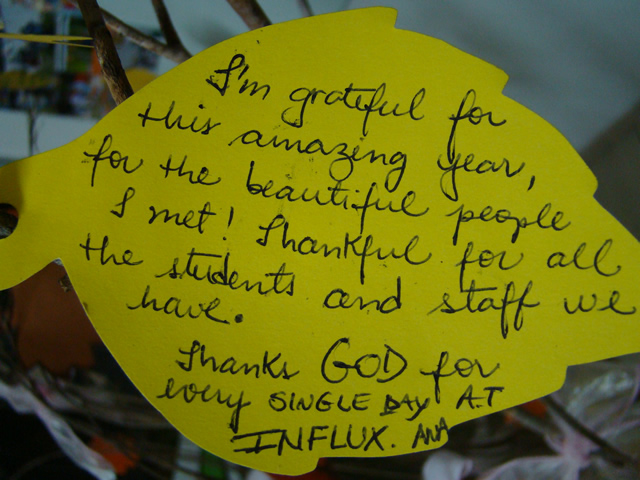 I'm grateful for
this amazing year,
for the beautiful people
I met! Thankful for all
the students and staff we
have.
Thanks GOD for
every SINGLE DAY AT
INFLUX. ANA